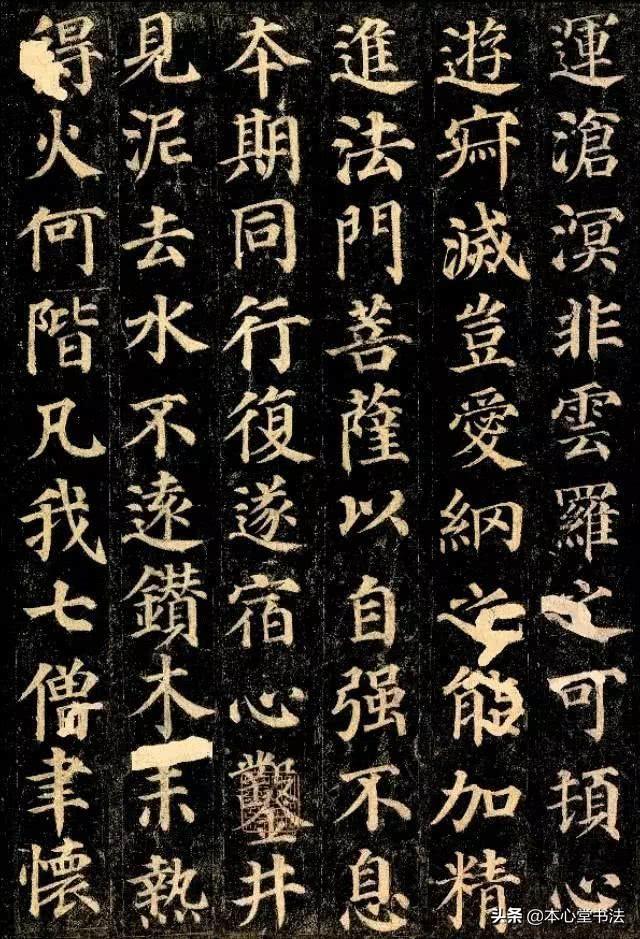 運滄溟非雲羅之可頓心
遊寂滅豈愛網之能加精
進法門菩薩以自强不息
本期同行復遂宿心鑿井
見泥去水不遠鑽木未熱
得火何階凡我七僧聿懷
头条 @本心堂书法